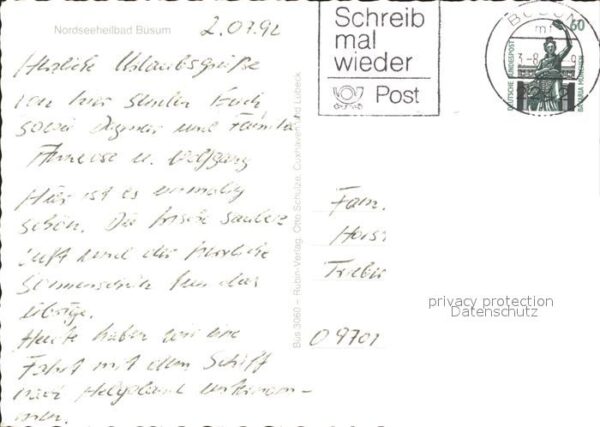 Nordseeheilbad Büsum
2.07.92
Herzliche Urlaubsgrüße
von hier senden Euch
sowie Dagmar und Familie
Annerose u. Wolfgang
Hier ist es einmalig
schön. Die frische saubere
Luft und der herrliche
Sonnenschein tun das
übrige.
Heute haben wir eine
Fahrt mit dem Schiff
nach Helgoland unternom-
men.
Bus 3060 – Rubin-Verlag, Otto Schulze, Cuxhaven und Lübeck
Schreib
mal
wieder
Post
BÜSUM
2242
60
DEUTSCHE BUNDESPOST
BAVARIA MÜNCHEN
Fam.
Horst
O 9701
privacy protection
Datenschutz